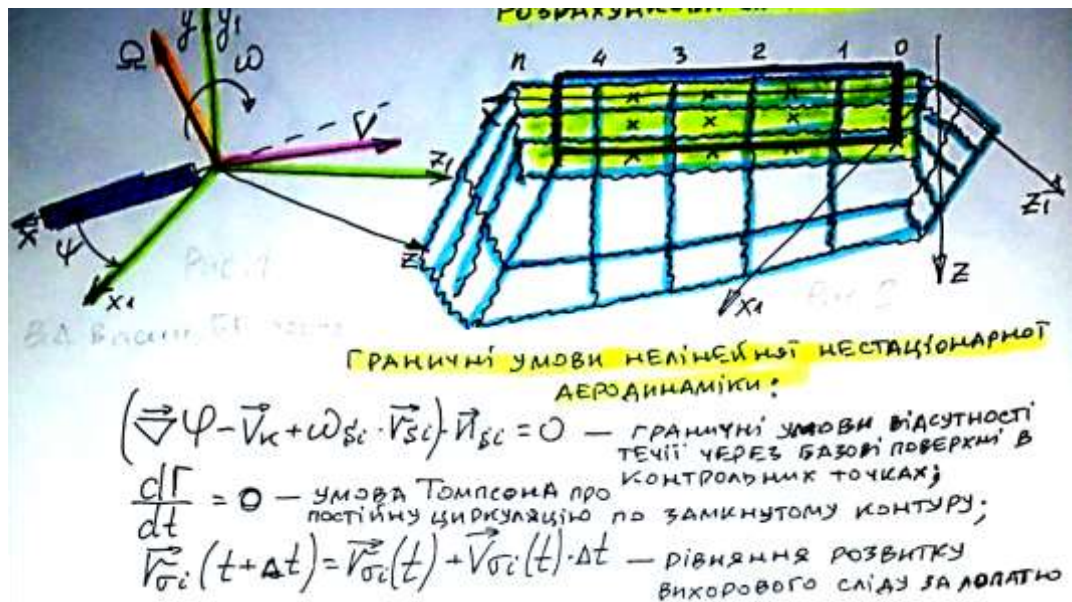 Ω y y₁ ω
V
z₁
x̄
ψ
x₁
z̄
n 4 3 2 1 0
z₁
z
x₁
Граничні умови нелінейняї нестаціонарної
аеродинаміки:
(∇⃗φ - V⃗к + ω⃗Si · r⃗Si) · n⃗Si = 0 — граничні умови відсутності
течії через базові поверхні в
контрольних точках;
dГ/dt = 0 — умова Томпсона про
постійну циркуляцію по замкнутому контуру;
r⃗σi (t+Δt) = r⃗σi (t) + V⃗σi (t)·Δt — рівняння розвитку
вихорового сліду за лопатю